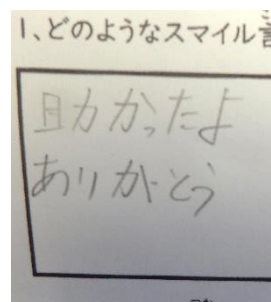 1、どのようなスマイル言
助かったよ
ありがとう